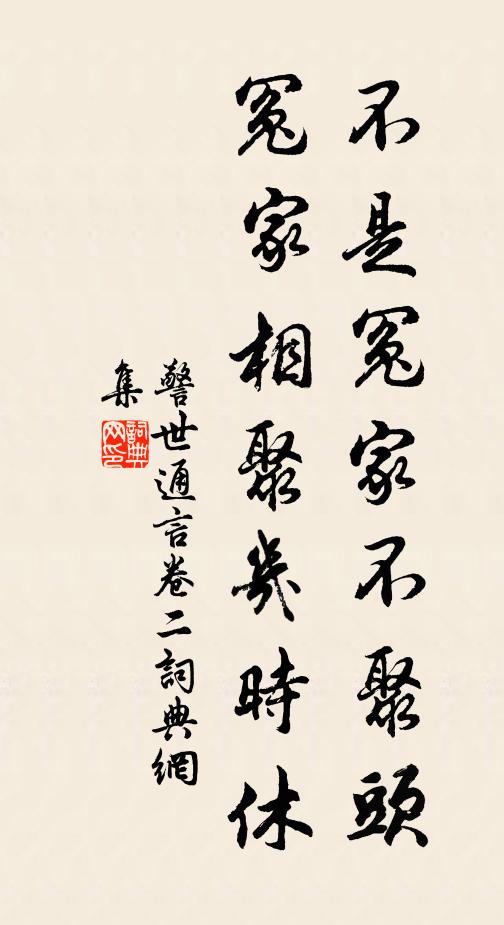 不是冤家不聚頭
冤家相聚幾時休
警世通言卷二詞典網
集
詞典
网印